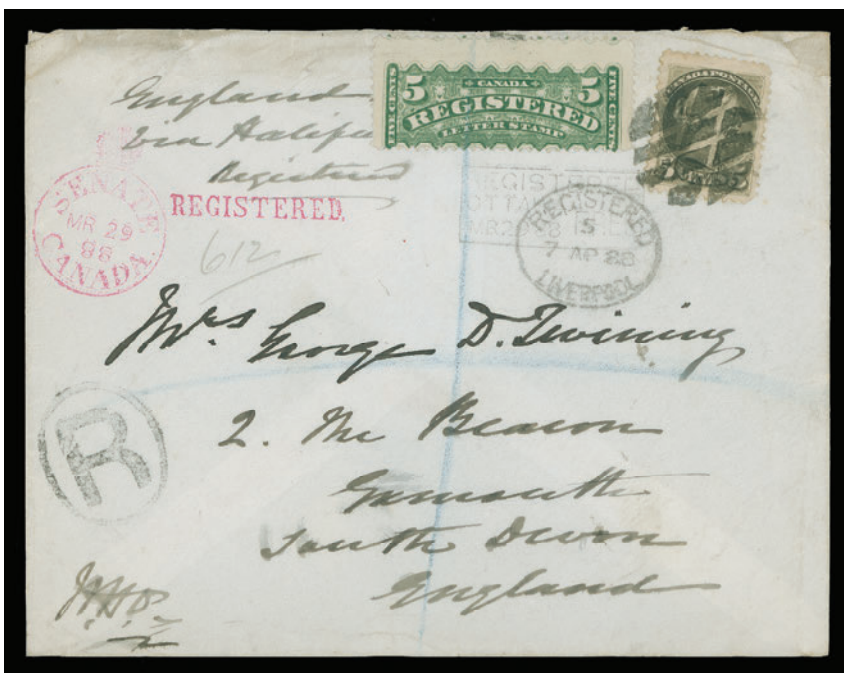 England
via Halifax
Registered
5 CANADA 5
FIVE CENTS
REGISTERED
FIVE CENTS
LETTER STAMP
CANADA POSTAGE
5 CENTS 5
SENATE
MR 29
88
CANADA.
REGISTERED.
612
REGISTERED
OTTAWA
MR 29
REGISTERED
5
7 AP 88
LIVERPOOL
Mrs. George D. Twining
2. The Beacon
Exmouth
South Devon
England
R